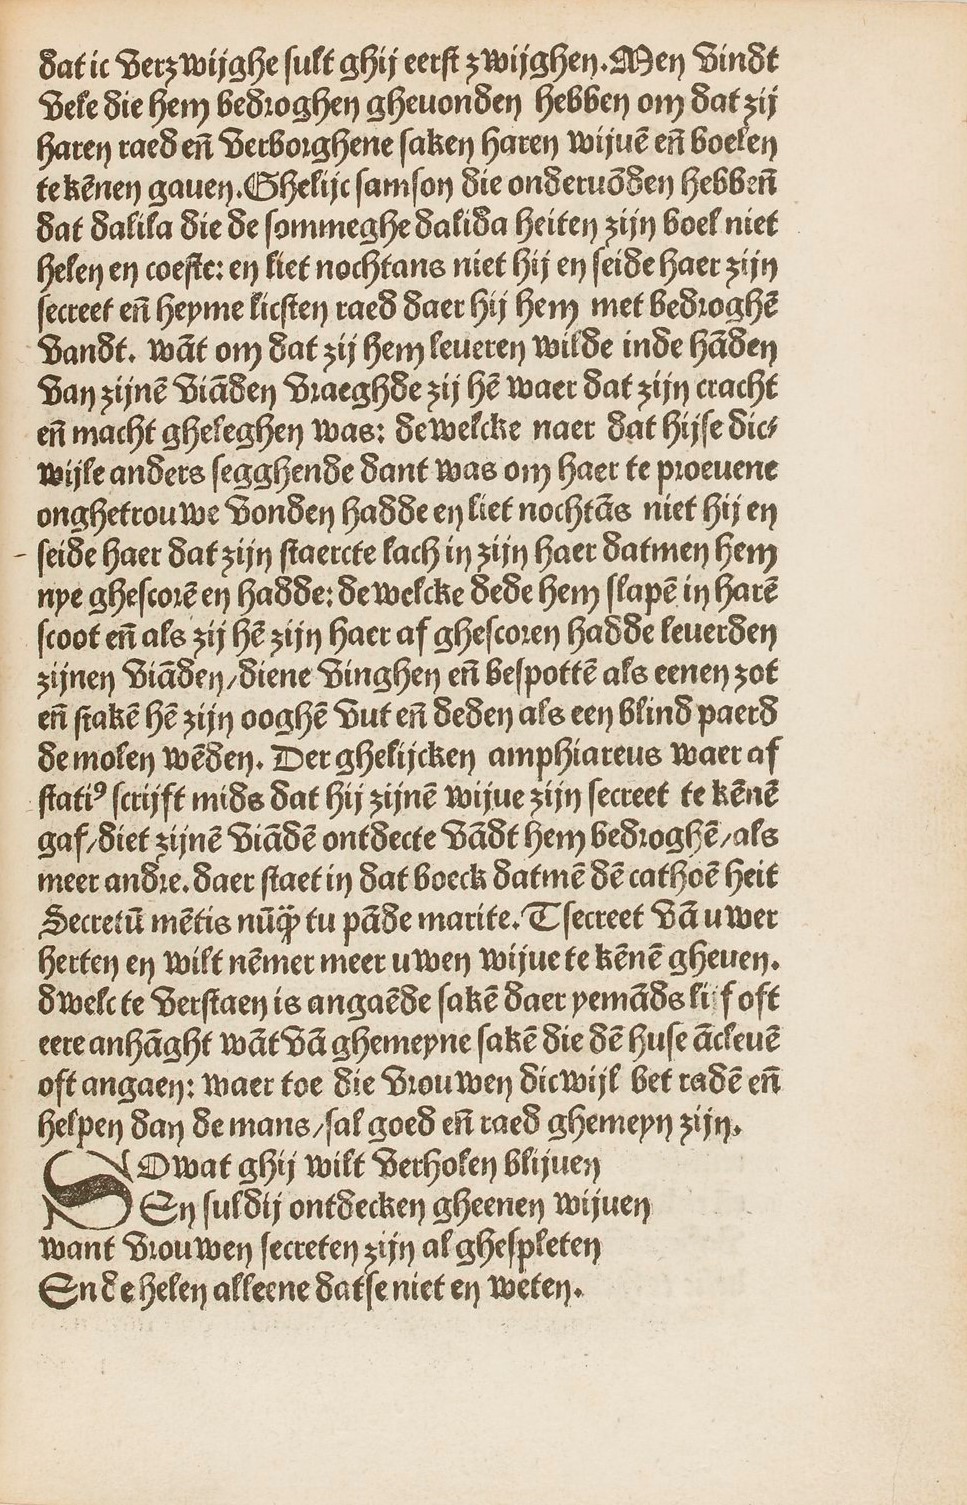 dat ic verzwijghe sult ghij eerst zwijghen. Men vindt
vele die hem bedroghen gheuonden hebben om dat zij
haren raed en̄ verborghene saken haren wijuē en̄ boelen
te kēnen gauen. Ghelijc samson die onderuōden hebben̄
dat dalila die de sommeghe dalida heiten zijn boel niet
helen en coeste: en liet nochtans niet hij en seide haer zijn
secreet en̄ heyme licsten raed daer hij hem met bedroghē
vandt. wāt om dat zij hem leueren wilde inde hāden
van zijnē viāden vraeghde zij hē waer dat zijn cracht
en̄ macht gheleghen was: de welcke naer dat hijse dic⸗
wijle anders segghende dant was om haer te proeuene
onghetrouwe vonden hadde en liet nochtās niet hij en
seide haer dat zijn staercte lach in zijn haer datmen hem
nye ghescorē en hadde: de welcke dede hem slapē in harē
scoot en̄ als zij hē zijn haer af ghescoren hadde leuerden
zijnen viāden/diene vinghen en̄ bespottē als eenen zot
en̄ stakē hē zijn ooghē vut en̄ deden als een blind paerd
de molen wēden. Der ghelijcken amphiareus waer af
statiꝰ scrijft mids dat hij zijnē wijue zijn secreet te kēnē
gaf/diet zijnē viādē ontdecte vādt hem bedroghē/als
meer andre. daer staet in dat boeck datmē dē cathoē heit
Secretū mētis nūꝙ̄ tu pāde marite. Tsecreet vā uwer
herten en wilt nēmer meer uwen wijue te kēnē gheuen.
dwelc te verstaen is angaēde sakē daer yemāds lijf oft
eere anhāght wāt vā ghemeyne sakē die dē huse ācleuē
oft angaen: waer toe die vrouwen dicwijl bet radē en̄
helpen dan de mans/sal goed en̄ raed ghemeyn zijn.
SOwat ghij wilt verholen blijuen
En suldij ontdecken gheenen wijuen
want vrouwen secreten zijn al ghespleten
Ende helen alleene datse niet en weten.